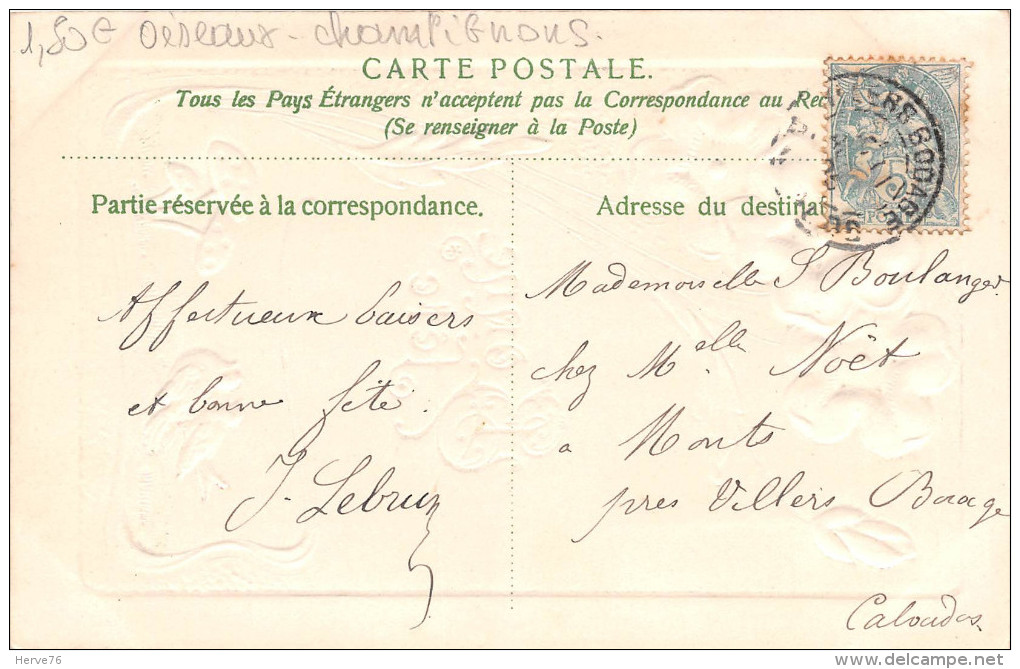 1,50€ Oiseaux - champignons.
CARTE POSTALE.
Tous les Pays Étrangers n'acceptent pas la Correspondance au Rec
(Se renseigner à la Poste)
Partie réservée à la correspondance.
Affectueux baisers
et bonne fête.
J. Lebrun
Adresse du destinat
Mademoiselle S Boulanger
chez Melle Noët
a Monts
pres Villers Bocage
Calvados
VILLERS BOCAGE
POSTES
Herve76